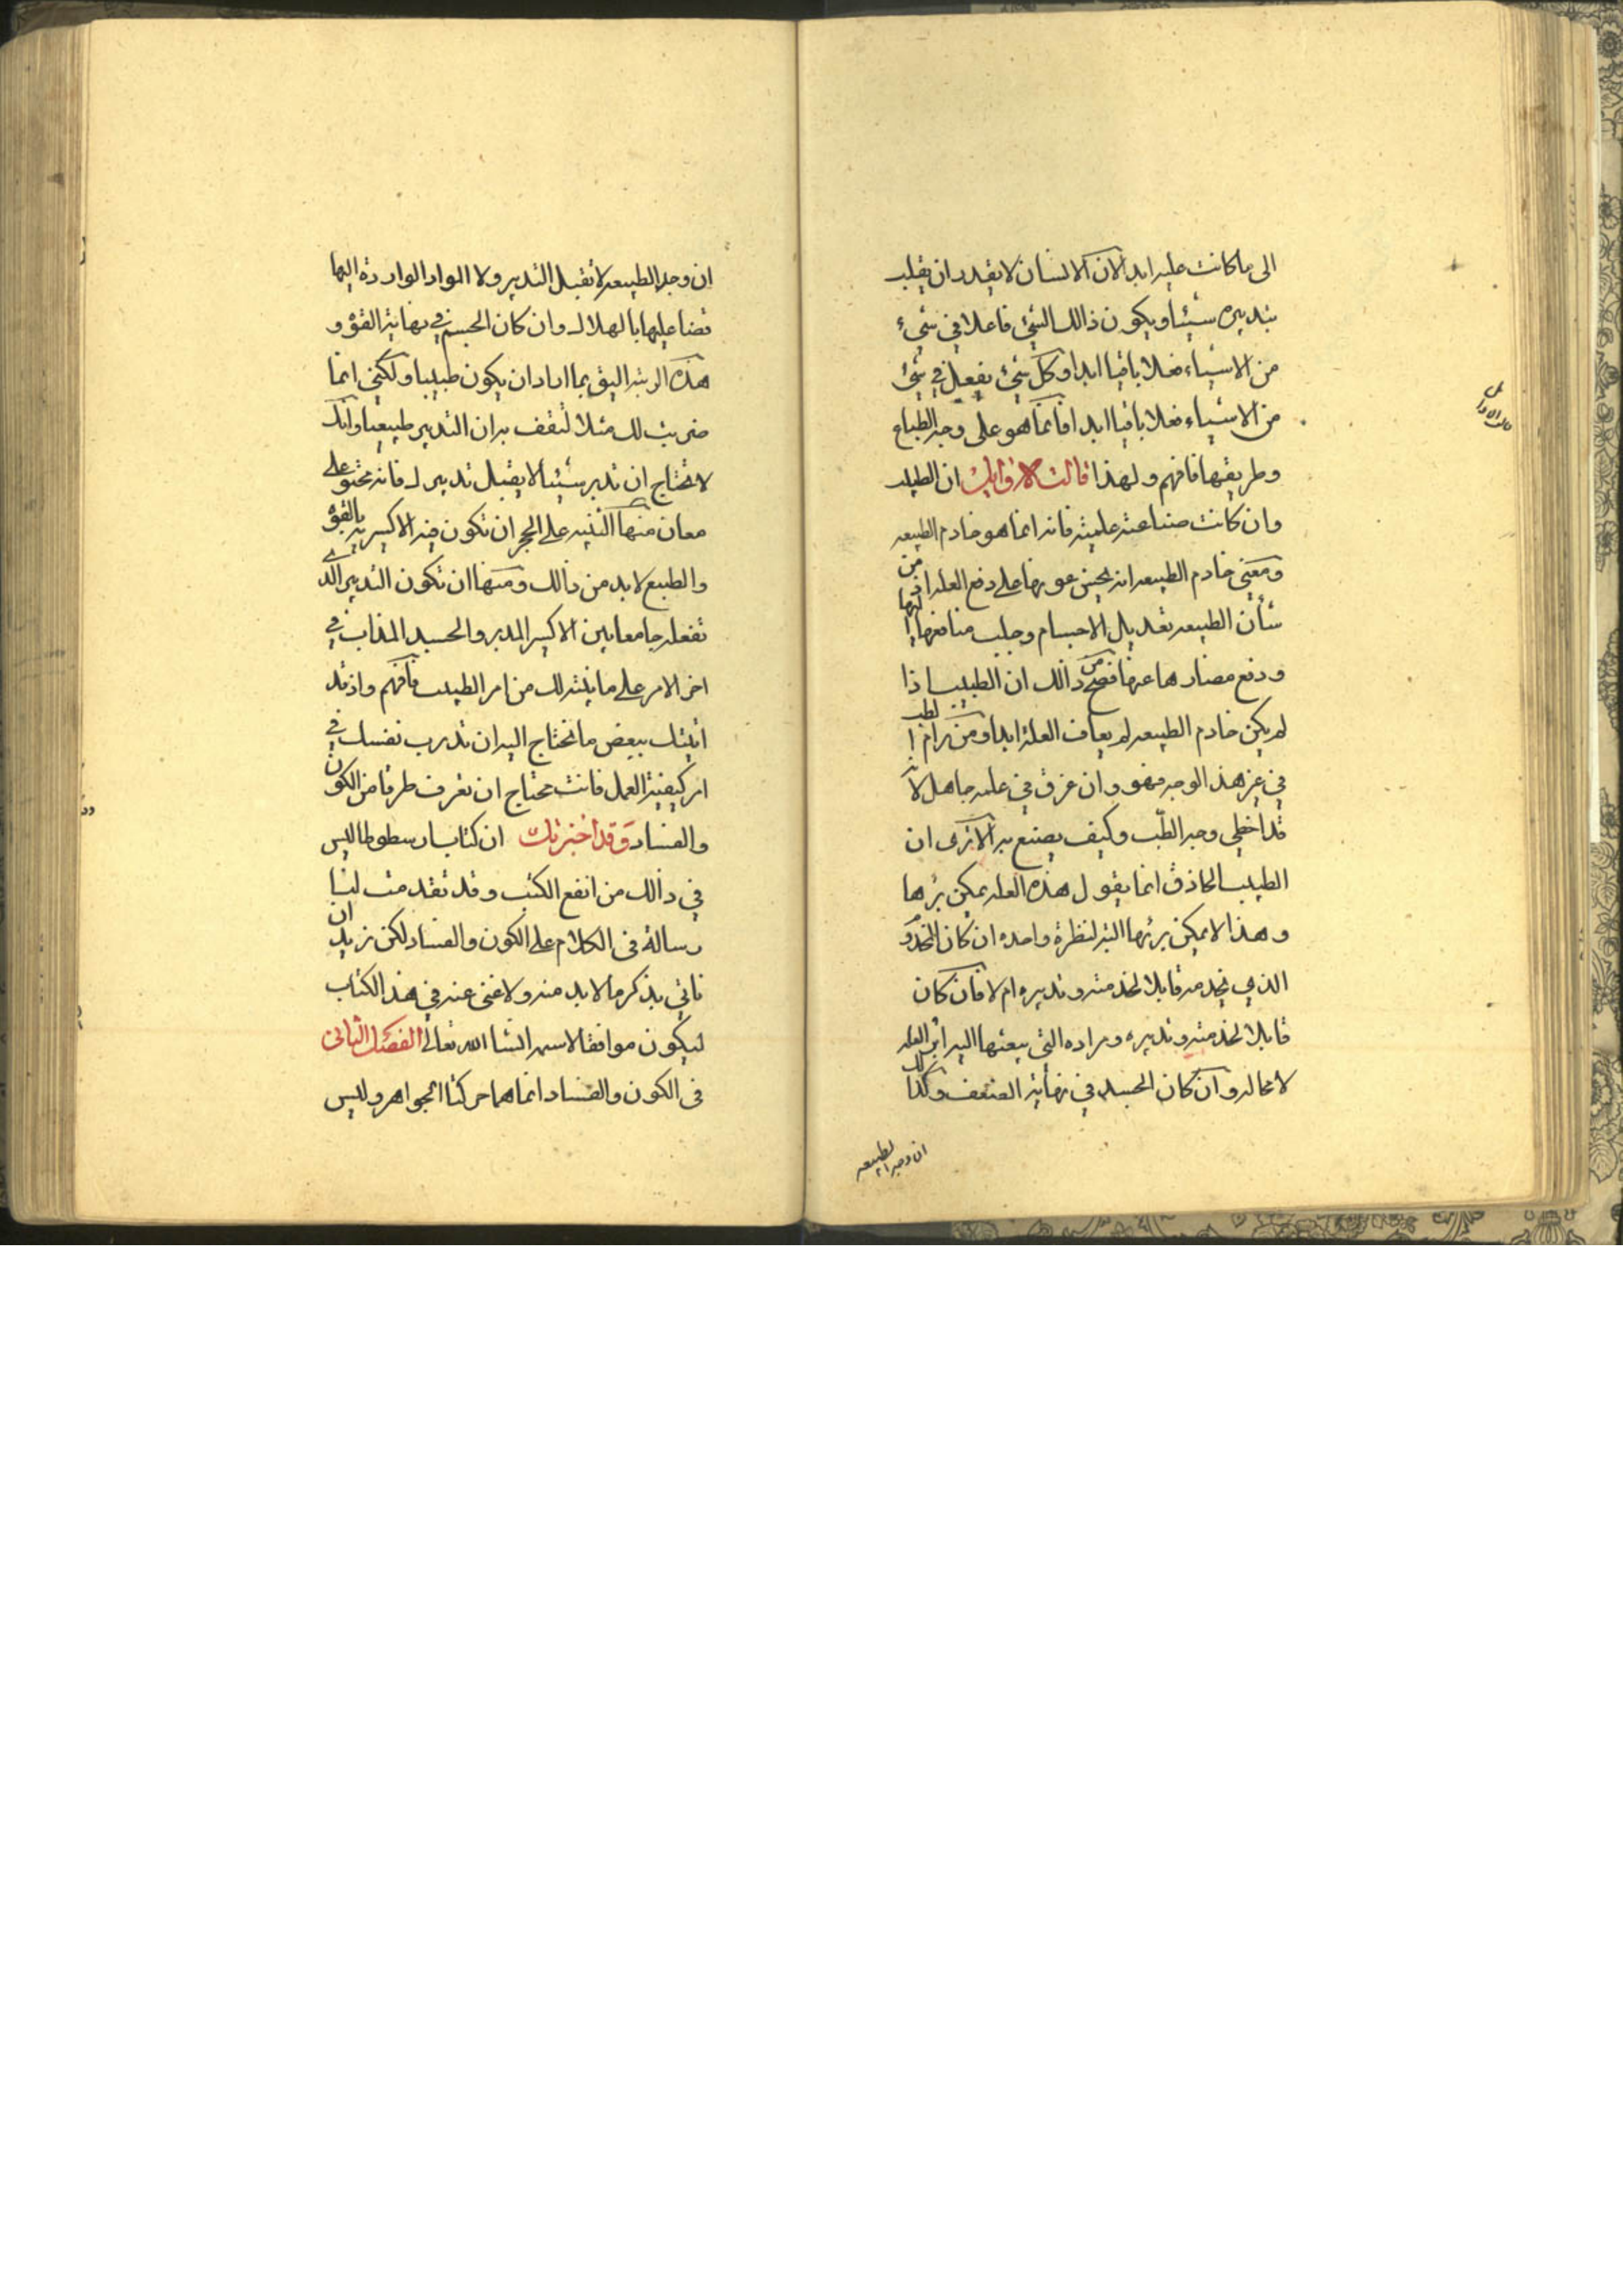 الى ما كانت عليه ابدا لان الانسان لا يقدر ان يقلب
بتدبيره سيئا ويكون ذالك الشئ فاعلا في شيء
من الاشياء فعلا باقيا ابدا وكل شئ يفعل في شئ
من الاشياء فعلا باقيا ابدا فانما هو على وجه الطباع
وطريقتها فافهم ولهذا قالت الاوايل ان الطبيب
وان كانت صناعته علميته فانه انما هو خادم الطبيعه
ومعنى خادم الطبيعه انه يحسن عونها على دفع العله اذ من
شأن الطبيعه تعديل الاجسام وجلب منافعها اليها
ودفع مضارها عنها فصح من ذالك ان الطبيب اذا
لم يكن خادم الطبيعه لم يعاف العلة ابدا ومن رام الطب
في غير هذ الوجه فهو وان عرق في علمه جاهل لانه
قد اخطى وجه الطّب وكيف يصنع به الا ترى ان
الطبيب الحاذق انما يقول هذه العله يمكن برءها
وهذا لا يمكن برئها البته لنظرة واحده ان كان المخدوم
الذي يخدمه قابلا لخدمته وتدبيره ام لا فان كان
قابلا لخدمته وتدبيره ومراده التي يبعثها اليه ابرا العله
لا محاله وان كان الجسد في نهاية الضعف وكذالك
ان وجد الطبيعه
ان وجد الطبيعه لا تقبل التدبير ولا المواد الواردة اليها
قضا عليها بالهلاك وان كان الجسم في نهاية القوة و
هذه الرتبه اليق بما اراد ان يكون طبيبا ولكني انما
ضربت لك مثلا لتقف به ان التدبير طبيعيا وانك
لا تحتاج ان تدبر سئيا لا يقبل تدبيرك فانه يحتوى على
معان منها التنبيه على الحجر ان تكون فيه الاكسريه بالقوة
والطبع لا بد من ذالك ومنها ان تكون التدبير الذي
تفعله جامعا بين الاكسير المدبر والجسد المذاب في
اخر الامر على ما بينته لك من امر الطبيب فافهم واذ قد
اتيتك ببعض ما تحتاج اليه ان تدرب نفسك في
امر كيفية العمل فانت محتاج ان تعرف طرفا من الكون
والفساد وقد اخبرتك ان كتاب ارسطوطاليس
في ذالك من انفع الكتب وقد تقدمت لنا
رسالة في الكلام على الكون والفساد لكن نريد ان
ناتي بذكر ما لا بد منه ولا غنى عنه في هذ الكتاب
ليكون موافقا لاسمه انشا الله تعالى الفصل الثاني
في الكون والفساد انما هما حركتا الجواهر وليس